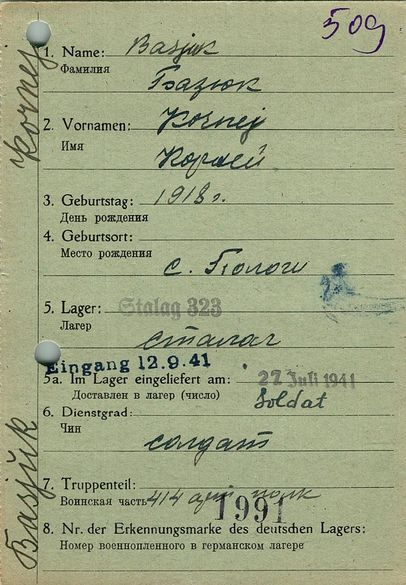 509
Kornej
1. Name: Basjuk
Фамилия
Базюк
2. Vornamen: Kornej
Имя
Корней
3. Geburtstag: 1918 г.
День рождения
4. Geburtsort:
Место рождения
с. Пологи
5. Lager: Stalag 323
Лагер
сталаг
Eingang 12.9.41
5a. Im Lager eingeliefert am: 27 Juli 1941
Доставлен в лагер (число)
6. Dienstgrad: Soldat
Чин
солдат
7. Truppenteil:
Воинская часть 414 полк
1991
8. Nr. der Erkennungsmarke des deutschen Lagers:
Номер военнопленного в германском лагере
Basjuk